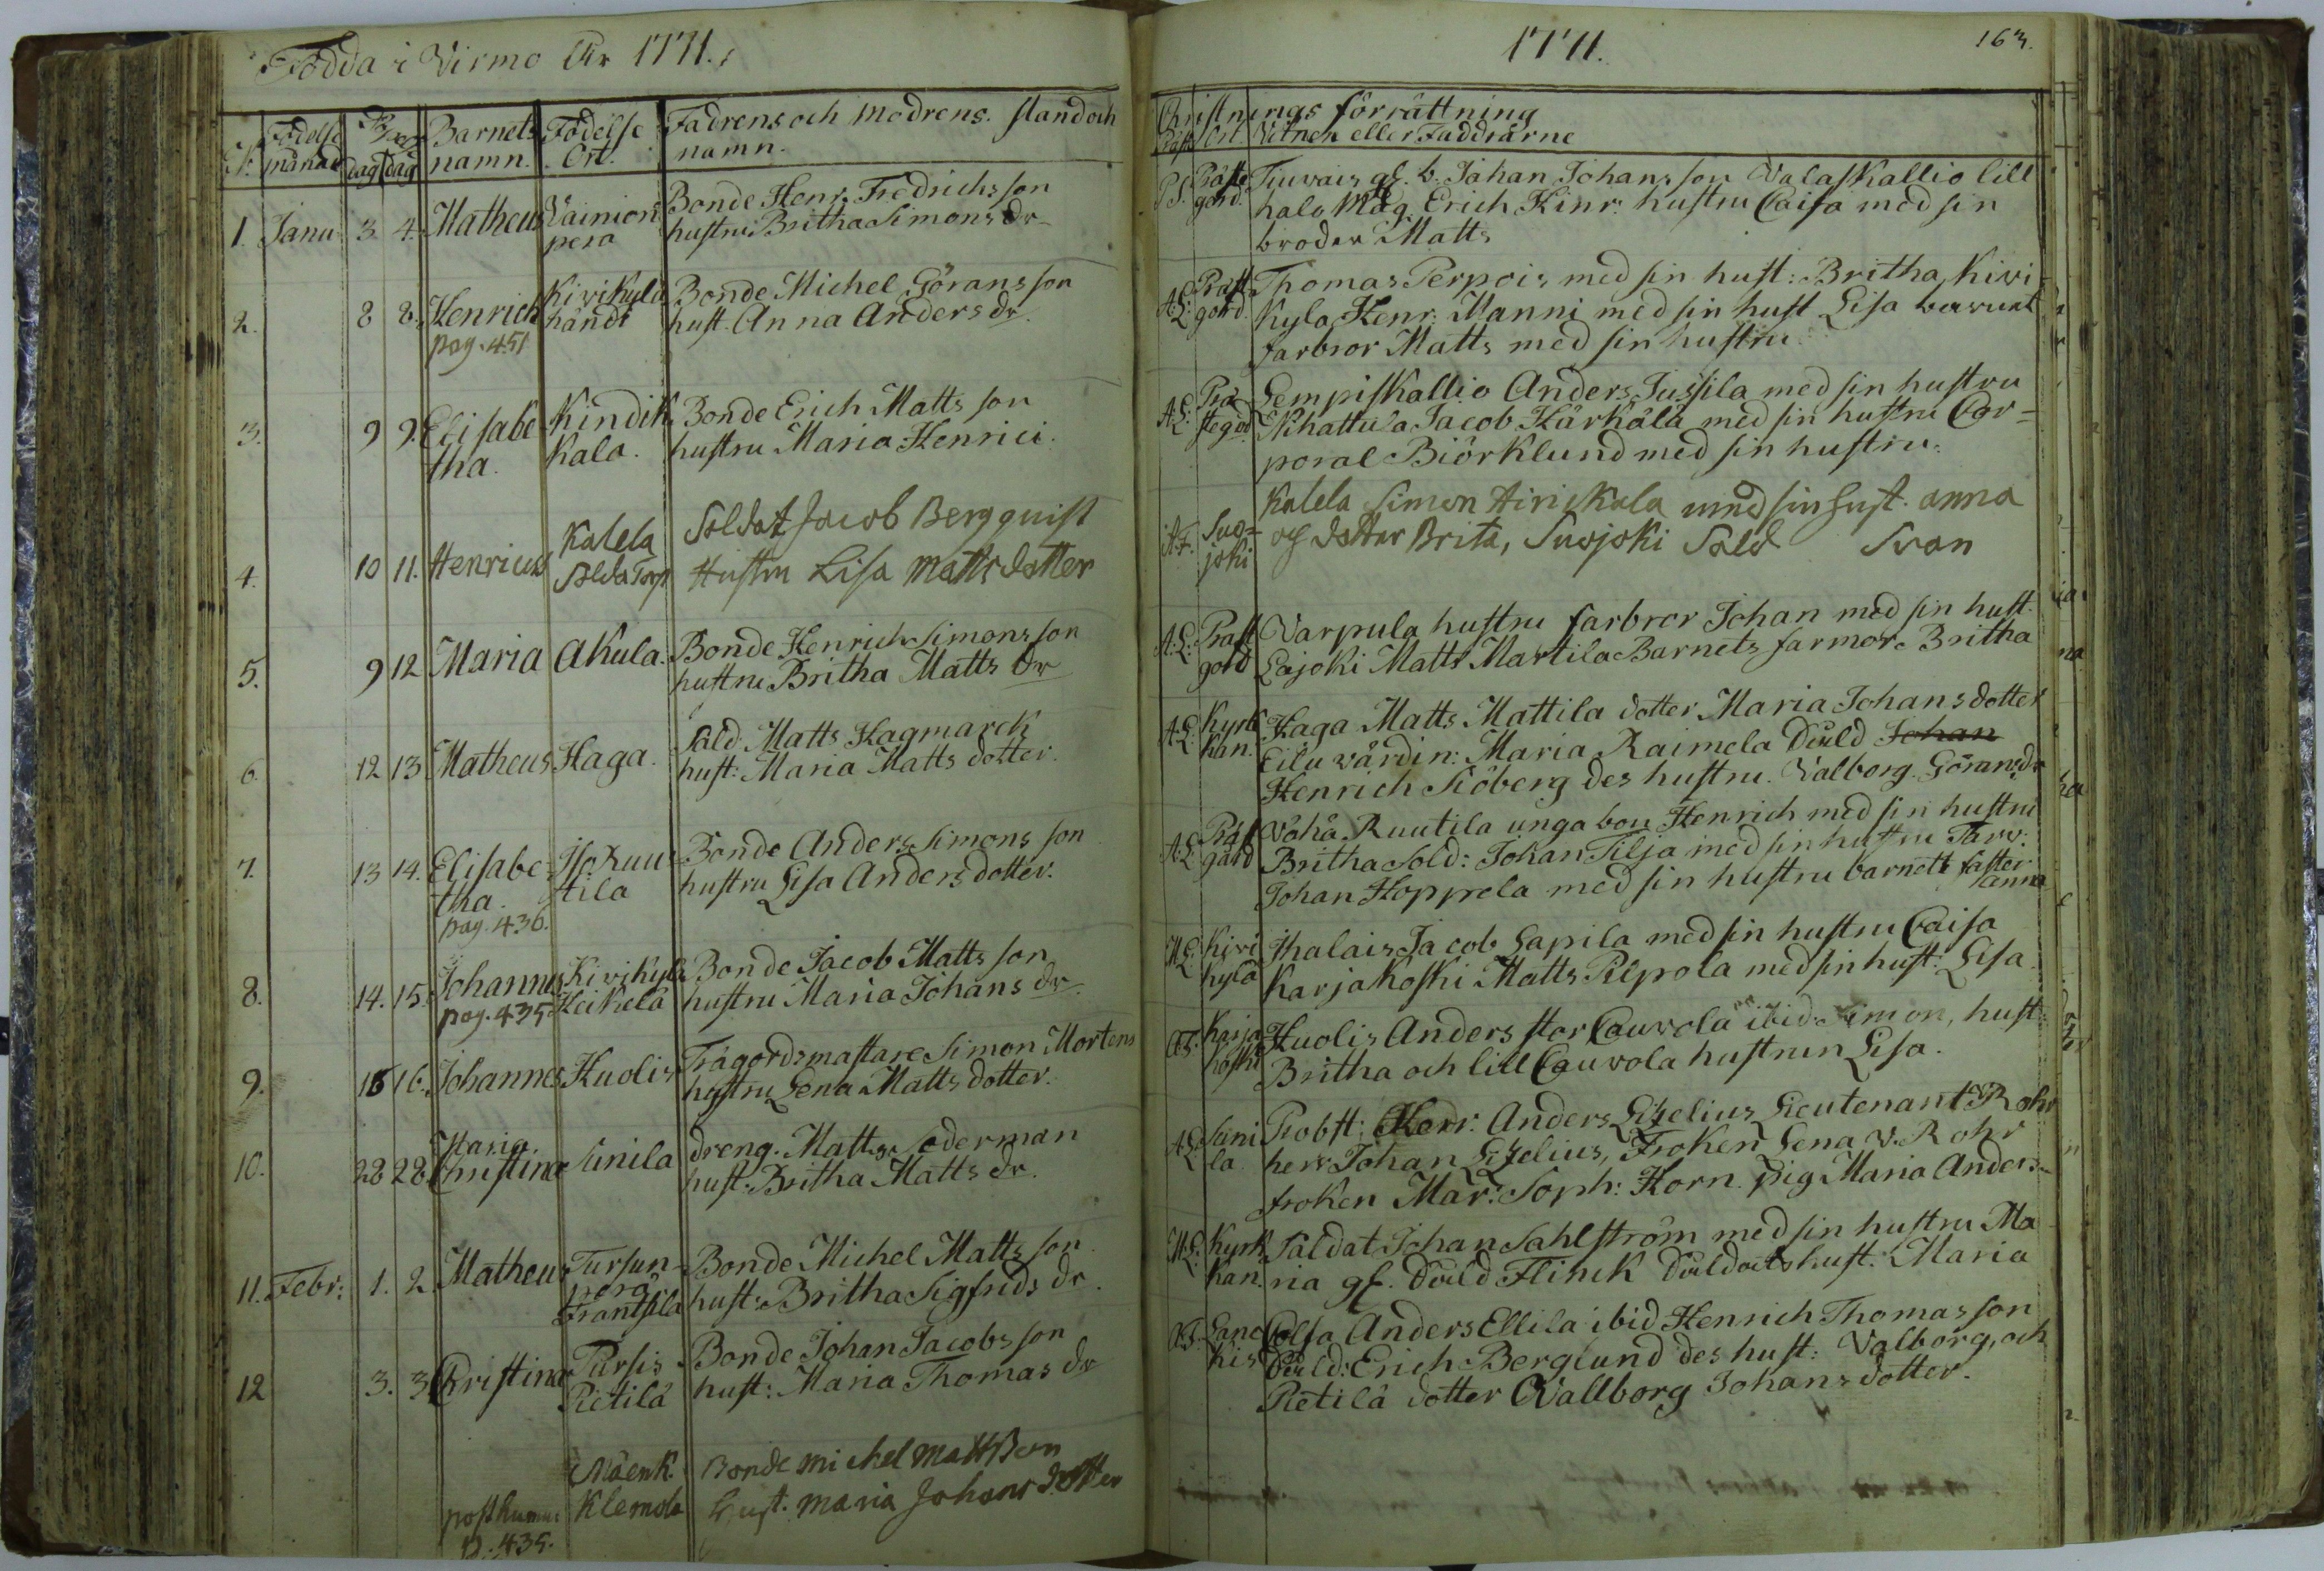 Födda i Virmo År 1771.
N: Födelse månad dag dag Barnets namn. Födelse Ort. Fadrens och modrens stand och namn.
1. Janu: 3. 4. Matheus Vainion pera Bonde Henr. Fredrichs son
hustru Britha Simons dr
2. 8 8. Henrich Kirikyla handt Bonde Michel Görans son
pag. 451 hust. Anna Anders dr
3. 9 9. Elisabe tha. Kindik kala. Bonde Erich Matts son
hustru Maria Henrici.
4. 10 11. Henricus Kalela Solda Torp Soldat Jacob Bergquist
Hustru Lisa Matts dotter
5. 9 12 Maria Akula. Bonde Henrich Simons son
hustru Britha Matts dr
6. 12 13 Matheus Haga. Sald Matts Hagmarck
hust: Maria Matts dotter.
7. 13 14. Elisabe tha. Iso Ruu tila Bonde Anders Simons son
pag. 436. hustru Lisa Anders dotter.
8. 14. 15. Johannes Kirikyla Heikela Bonde Jacob Matts son
pag. 435 hustru Maria Johans dr
9. 15 16. Johannes Huolis Trägordsmastare Simon Mortens
hustru Lena Matts dotter.
10. 28 28. Maria Christina Sinila dreng. Matts Soderman
hust: Britha Matts dr.
11. Febr: 1. 2. Matheus Tursun pera Frantsila Bonde Michel Matts son
hust: Britha Sigfrids dr.
12 3. 3 Christina Pursis Pietilä Bonde Johan Jacobs son
hust: Maria Thomas dr
Mäenk. Klemola Bonde michel Mattsson
posthumus hust. maria Johans dotter
p. 435.
1771.
163.
Christnings förrättning
Präst Ort. Vitnen eller Faddrarne
P.S. Präste gård. Tiuvais gl. b. Johan Johans son Valaskallio lill
halo Måg. Erich Hinr: hustru Caisa med sin
broder Matts
A.L: Präst gord. Thomas Perpois med sin hust: Britha, Kiri
kyla Henr: Manni med sin hust Lisa
farbror Matts med sin hustru.
A.L: Prä stegd. Lempiskallio Anders Jussila med sin hustru
Nihattula Jacob Härkälä med sin hustru Cor=
poral Biörklund med sin hustru.
A.F. Suo= joki Kalela Simon Airickala med sin hust. anna
och dotter Brita, Suojoki Sold Svan
A.L: Präst gård Varpula hustru farbror Johan med sin hust.
Lajoki Matts Martila Barnets farmor Britha
A.L: Kyrk han. Haga Matts Mattila dotter Maria Johans dotter
Eilu värdin: Maria Raimela Sold Johan
Henrich Siöberg des hustru. Valborg Görans dr
A.L Präst gård Vähä Ruutila unga bon Henrich med sin hustru
Britha Sold: Johan Tilja med sin hustru Tarv:
Johan Hoppela med sin hustru barnets faster anna
M.L: Kiri kyla Ihalais Jacob Lapila med sin hustru Caisa
Karjakoski Matts Pilpola med sin hust: Lisa
A.F. Karja koski Huolis Anders stor Cauvola ibid Simon, hust:
Britha och lill Cauvola hustrun Lisa.
A.L: Sini la Probst: Herr: Anders Lizelius, Lieutenant Rohr
herr Johan Lizelius, Froken Lena v. Rohr
froken Mar: Soph: Horn. pig Maria Anders
M.L: Kyrk han. Saldat Johan Sahlström med sin hustru Ma
ria gl. Sold Flinck Soldats hust: Maria
A.F. Lanc kis Colsa Anders Ellila ibid Henrich Thomas son
Sold: Erich Berglund des hust: Valborg, och
Pietilä dotter Vallborg Johans dotter.